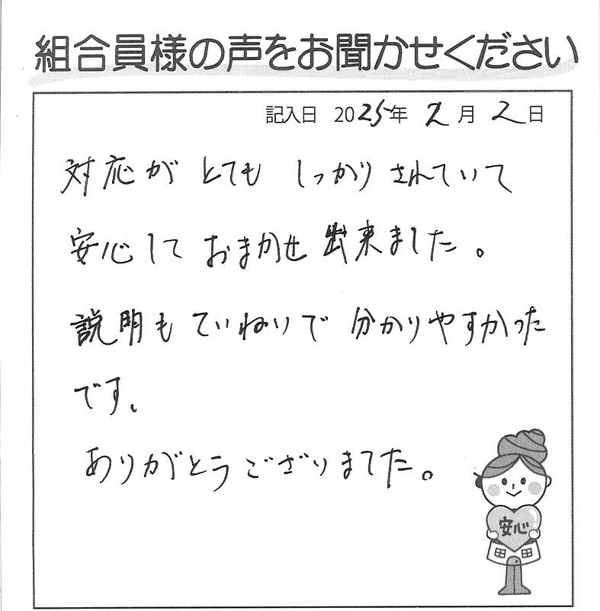 組合員様の声をお聞かせください
記入日 2025年 2月 2日
対応がとてもしっかりされていて
安心しておまかせ出来ました。
説明もていねいで分かりやすかった
です。
ありがとうございました。
安心